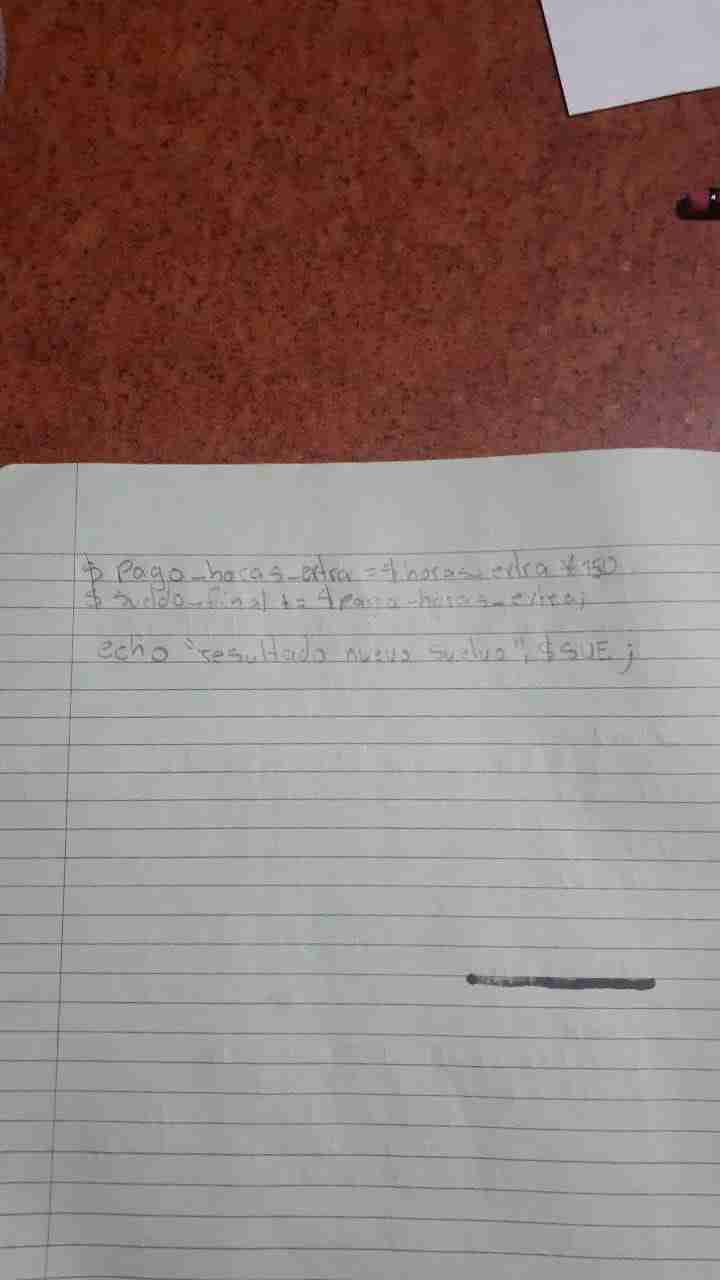 $ Pago_horas_extra = $horas_extra * 150
$ sueldo_final += $pago_horas_extra;
echo "resultado nuevo suelvo", $SUE;